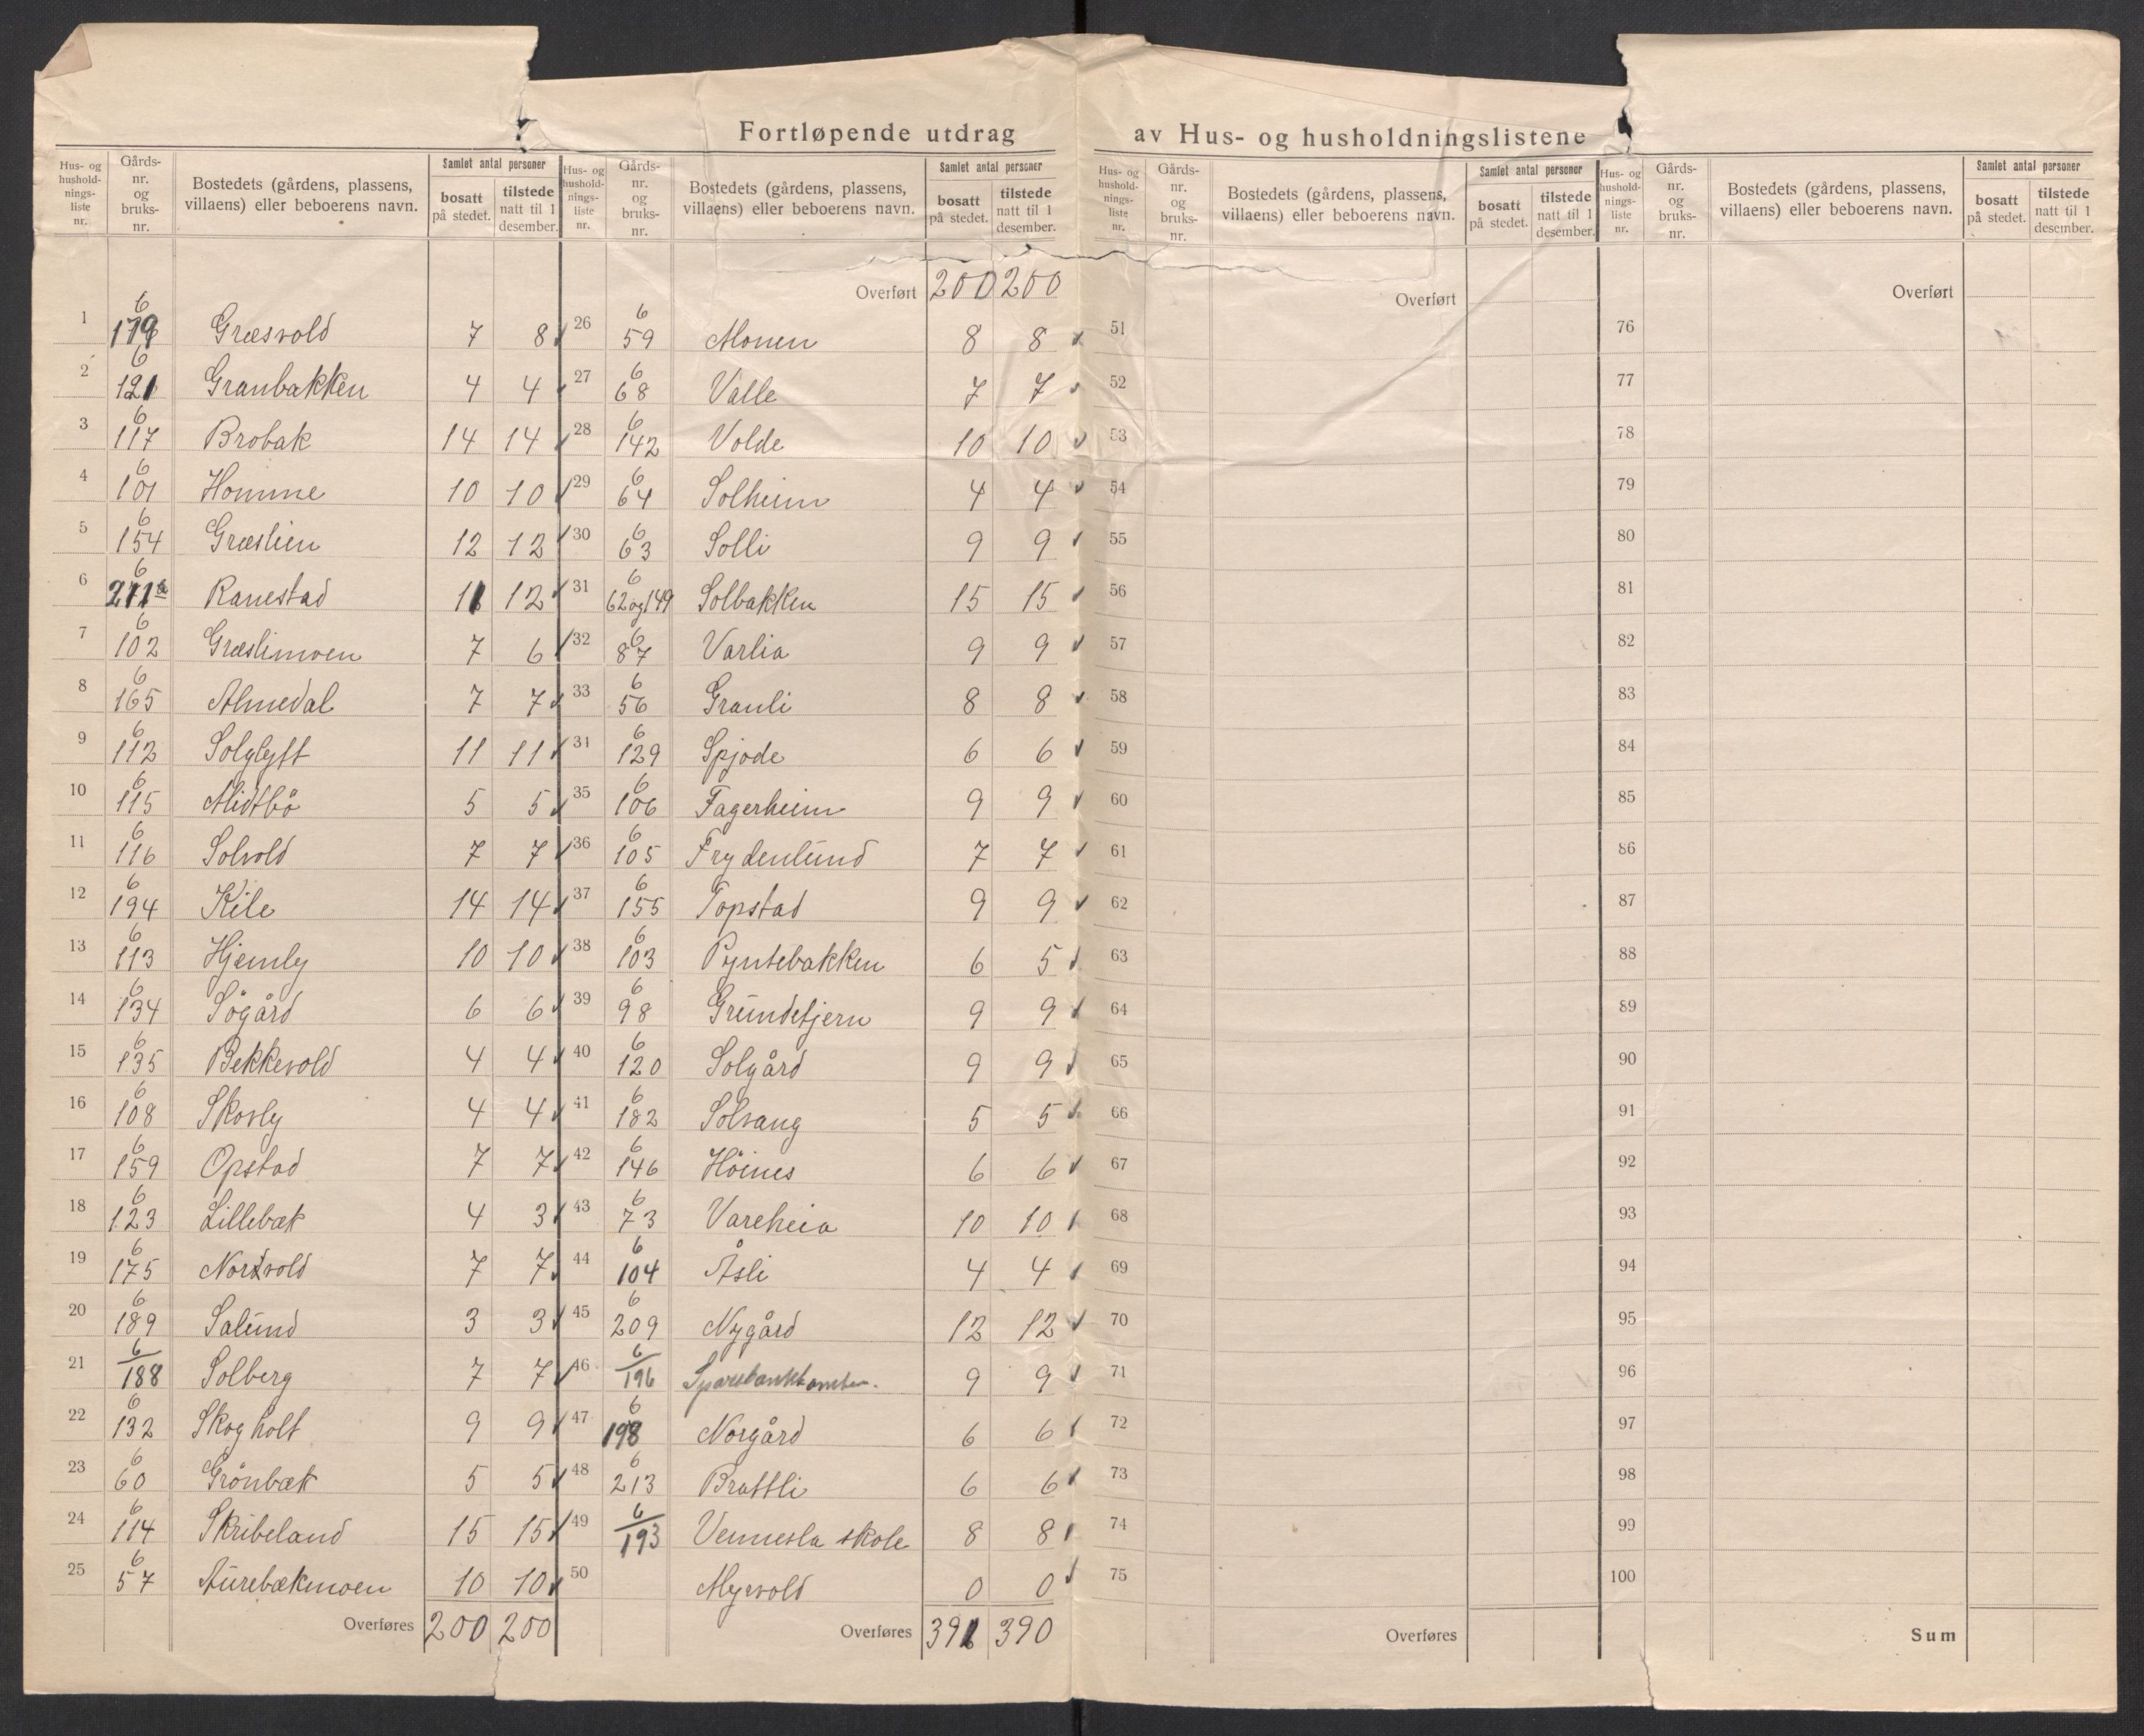 Fortløpende utdrag av Hus- og husholdningslistene
Hus- og husholdningsliste nr. | Gårds-nr. og bruks-nr. | Bostedets (gårdens, plassens, villaens) eller beboerens navn. | Samlet antal personer | bosatt på stedet. | tilstede natt til 1 desember.
1 6 179 Græsvold 7 8
2 6 121 Granbakken 4 4
3 6 117 Brobak 14 14
4 6 101 Homme 10 10
5 6 154 Græslien 12 12
6 6 Ranestad 11 12
7 6 102 Græslimoen 7 6
8 6 165 Almedal 7 7
9 6 112 Solglytt 11 11
10 6 115 Midtbö 5 5
11 6 116 Solvold 7 7
12 6 194 Kile 14 14
13 6 113 Hjemly 10 10
14 6 134 Sögård 6 6
15 6 135 Bekkevold 4 4
16 6 108 Skovly 4 4
17 6 159 Opstad 7 7
18 6 123 Lillebæk 4 3
19 6 175 Nordvold 7 7
20 6 189 Salund 3 3
21 6/188 Solberg 7 7
22 6 132 Skogholt 9 9
23 6 60 Grönbæk 5 5
24 6 114 Skribeland 15 15
25 6 57 Aurebækmoen 10 10
Overføres 200 200
Hus- og husholdningsliste nr. | Gårds-nr. og bruks-nr. | Bostedets (gårdens, plassens, villaens) eller beboerens navn. | Samlet antal personer | bosatt på stedet. | tilstede natt til 1 desember.
Overført 200 200
26 6 59 Monen 8 8
27 6 68 Valle 7 7
28 6 142 Volde 10 10
29 6 64 Solheim 4 4
30 6 63 Solli 9 9
31 6 62 og 149 Solbakken 15 15
32 6 87 Varlia 9 9
33 6 56 Granli 8 8
34 6 129 Spjode 6 6
35 6 106 Fagerheim 9 9
36 6 105 Frydenlund 7 7
37 6 155 Topstad 9 9
38 6 103 Pyntebakken 6 5
39 6 98 Grundetjern 9 9
40 6 120 Solgård 9 9
41 6 182 Solvang 5 5
42 6 146 Höines 6 6
43 6 73 Vareheia 10 10
44 6 104 Åsli 4 4
45 6 209 Nygård 12 12
46 6/196 9 9
47 6 198 Norgård 6 6
48 6 213 Brattli 6 6
49 6/193 Vennesla skole 8 8
50 Myrvold 0 0
Overføres 391 390
Hus- og husholdningsliste nr. | Gårds-nr. og bruks-nr. | Bostedets (gårdens, plassens, villaens) eller beboerens navn. | Samlet antal personer | bosatt på stedet. | tilstede natt til 1 desember.
Overført
51
52
53
54
55
56
57
58
59
60
61
62
63
64
65
66
67
68
69
70
71
72
73
74
75
Overføres
Hus- og husholdningsliste nr. | Gårds-nr. og bruks-nr. | Bostedets (gårdens, plassens, villaens) eller beboerens navn. | Samlet antal personer | bosatt på stedet. | tilstede natt til 1 desember.
Overført
76
77
78
79
80
81
82
83
84
85
86
87
88
89
90
91
92
93
94
95
96
97
98
99
100
Sum